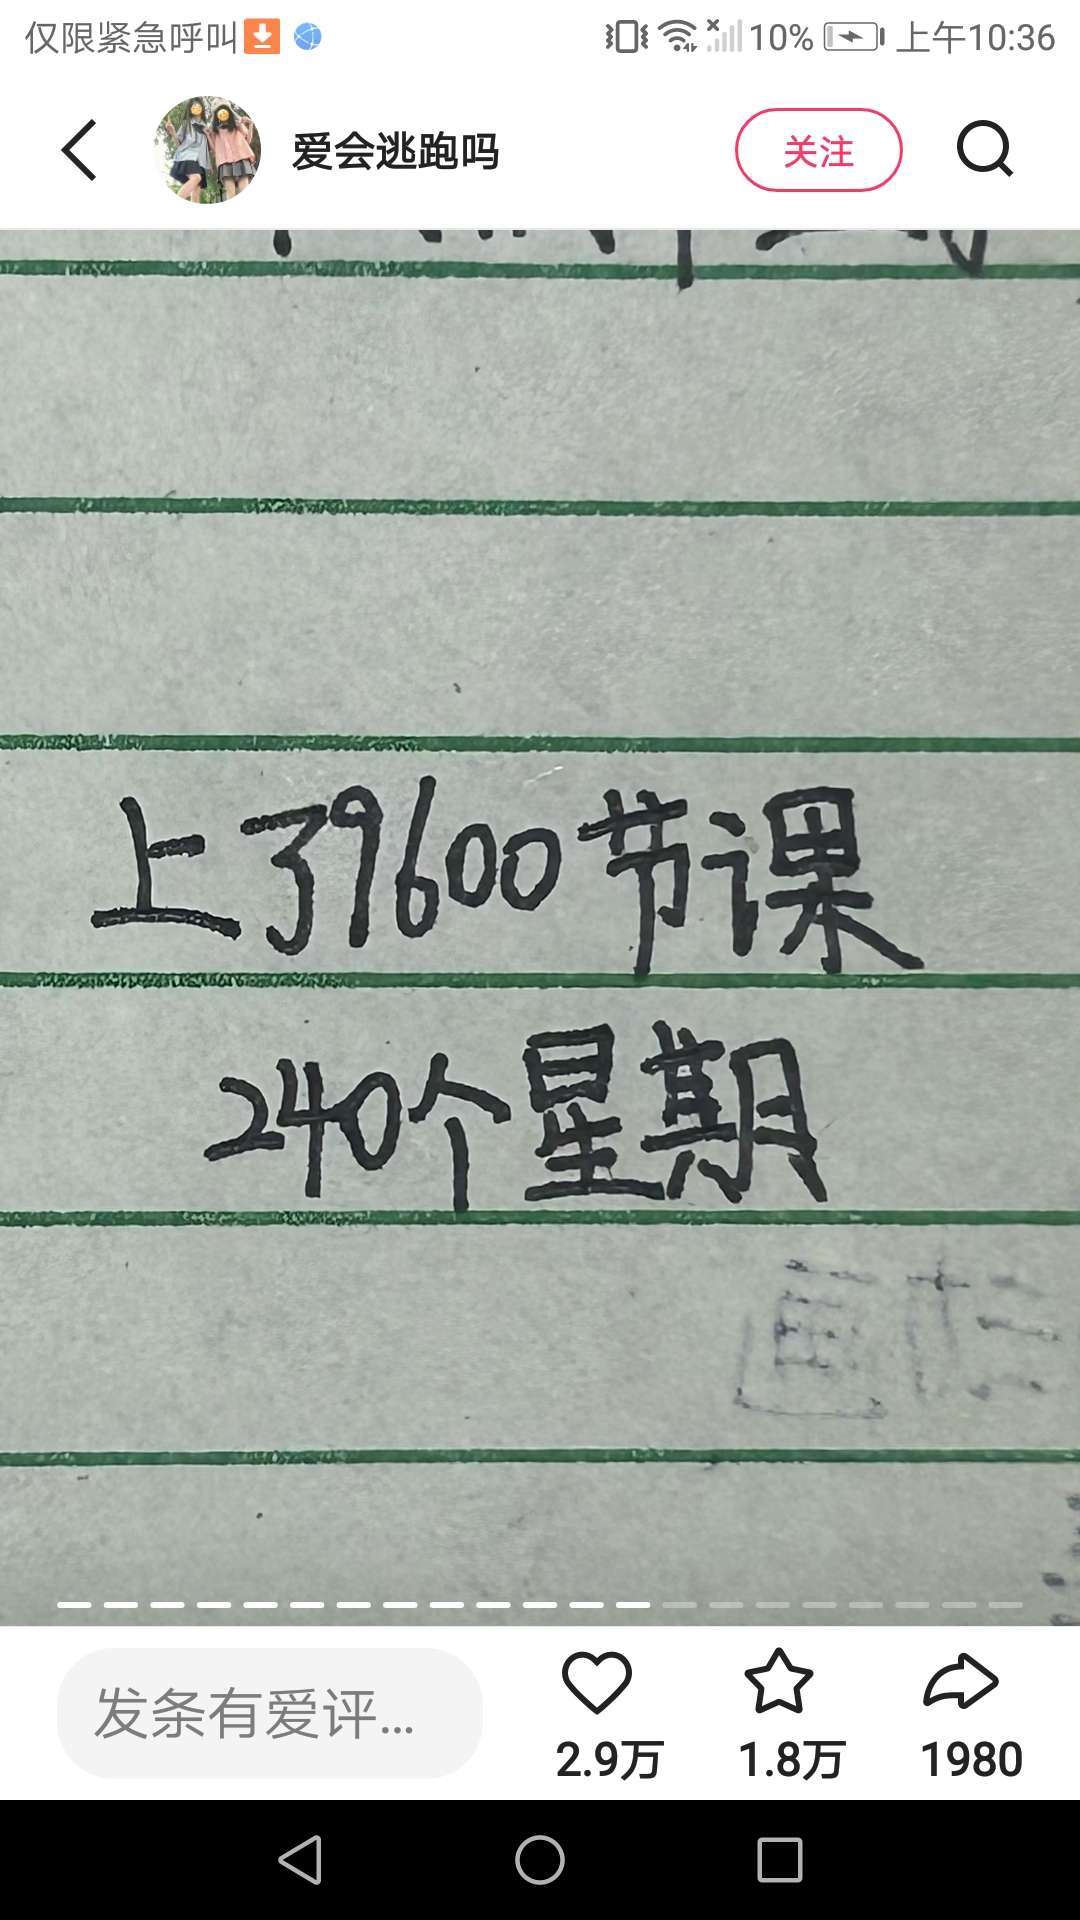 仅限紧急呼叫 10% 上午10:36
爱会逃跑吗 关注
上了9600节课
240个星期
发条有爱评...
2.9万 1.8万 1980